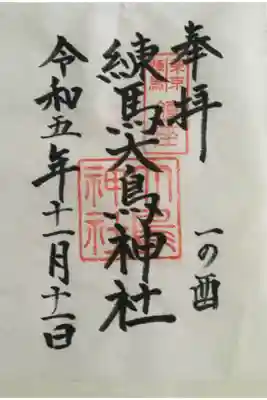 奉拝
一の酉
練馬大鳥神社
令和五年十一月十一日
大鳥神社